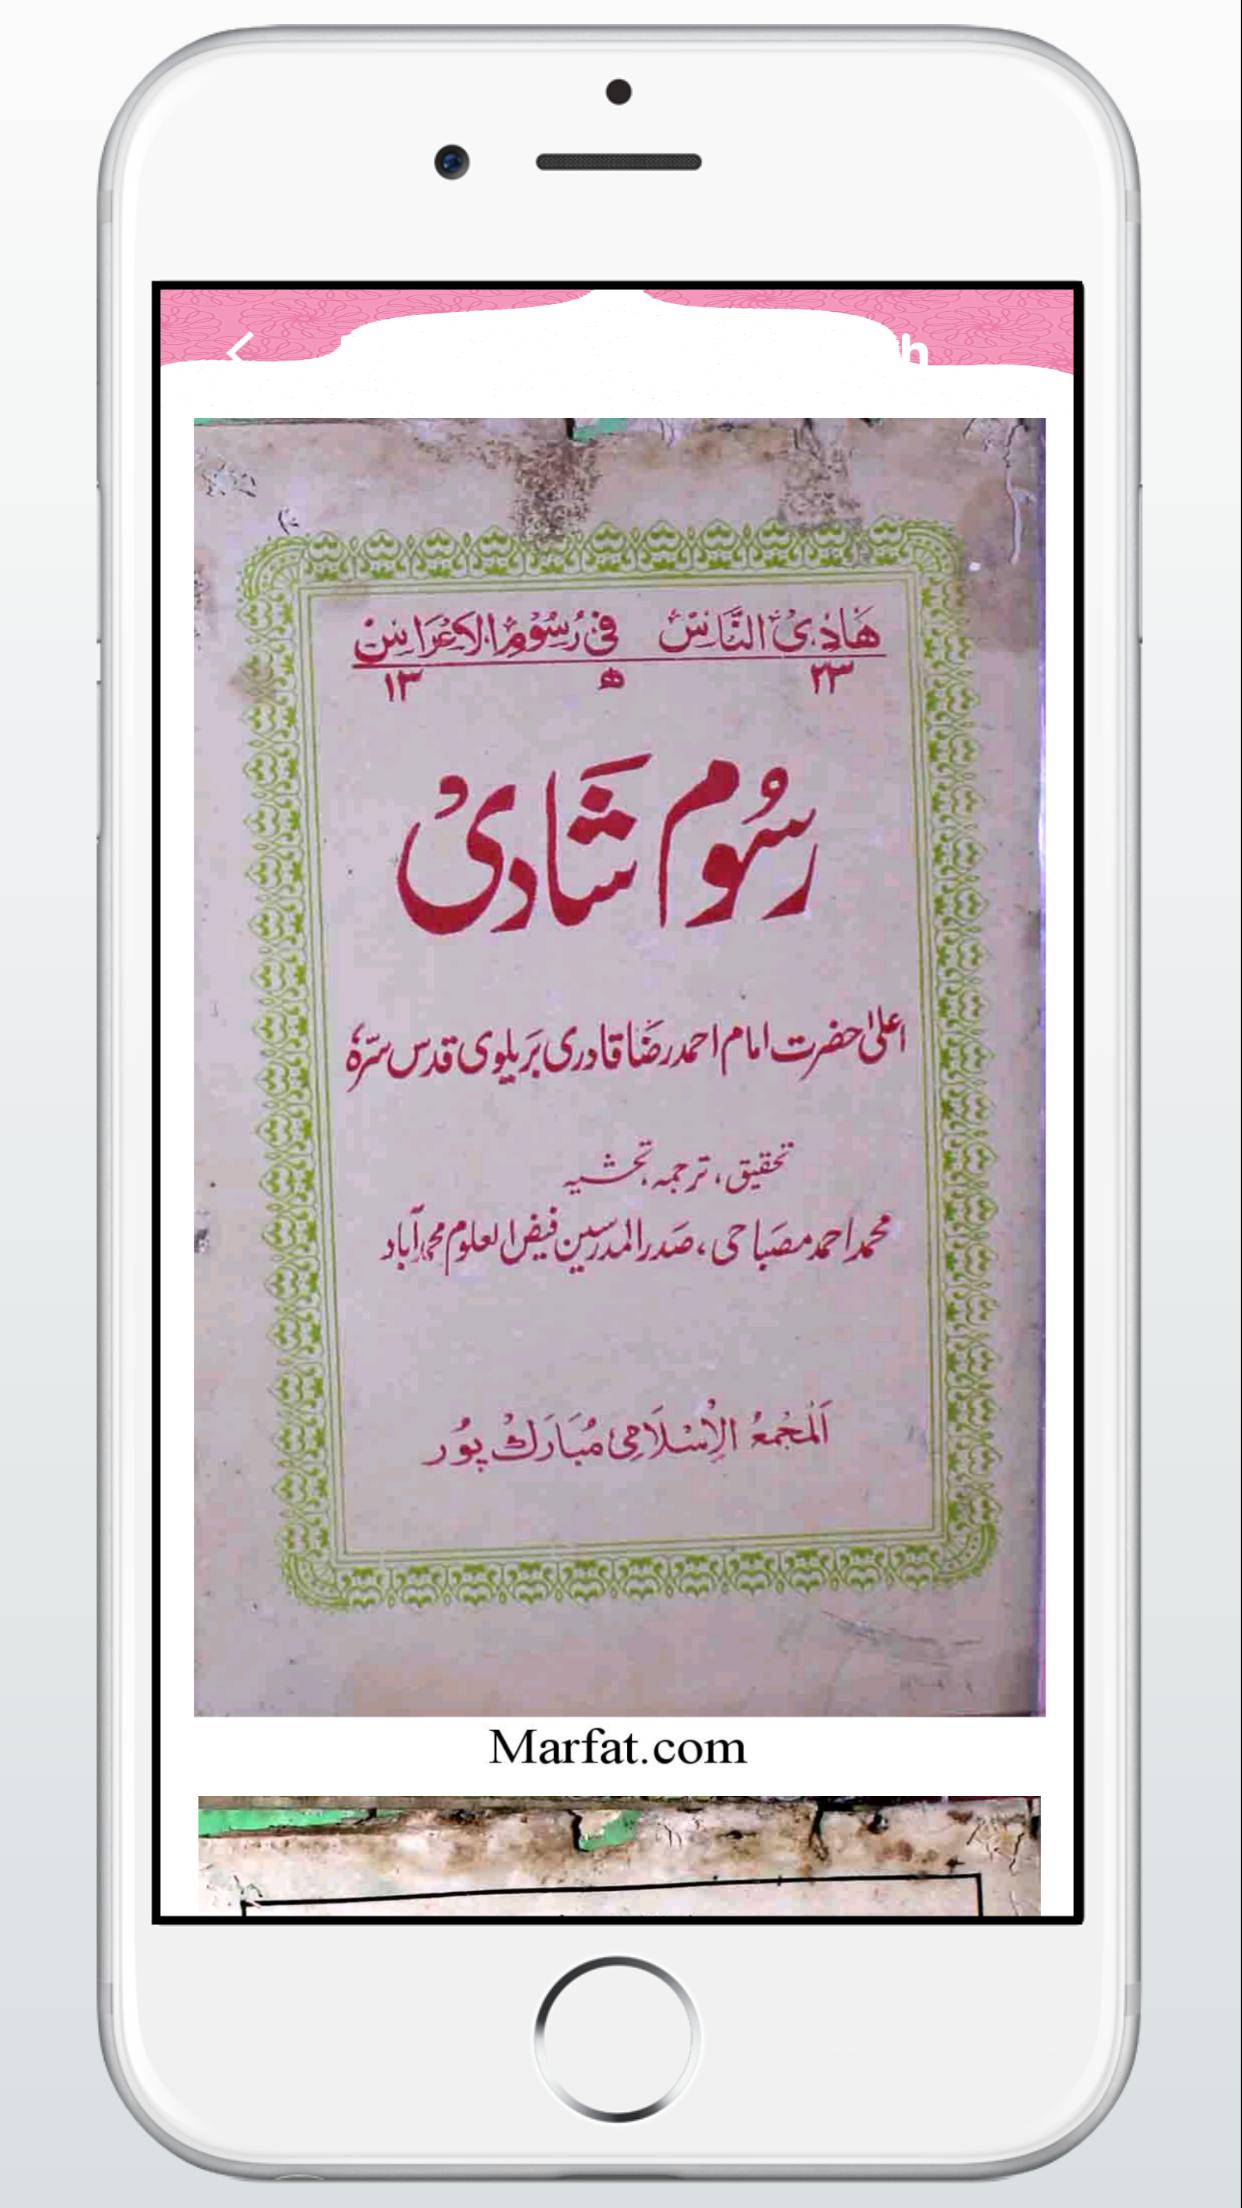 h
هَادِیُ النَّاسِ فِی رُسُوْمِ الْاَعْرَاسِ
۱۳ ھ ۲۳
رسُوم شَادیُ
اعلیٰ حضرت امام احمد رضا قادری بریلوی قدس سرّہٗ
تحقیق، ترجمہ، تحشیہ
محمد احمد مصباحی، صدر المدرسین فیض العلوم محمدآباد
اَلْمَجْمَعُ الْاِسْلَامِی مُبَارَکْ پُور
Marfat.com